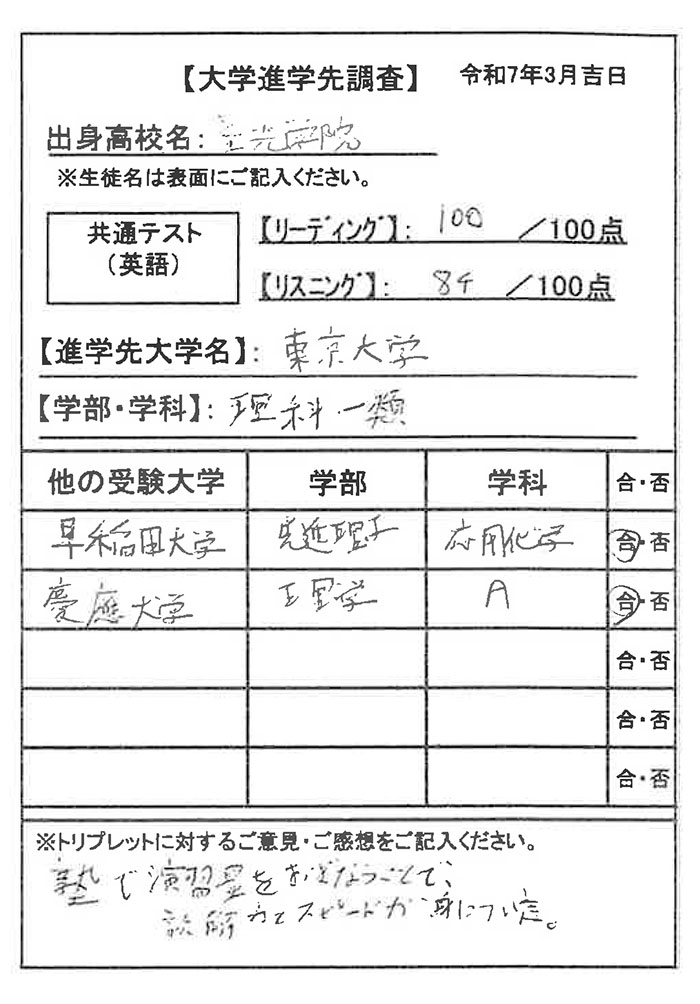 【大学進学先調査】 令和7年3月吉日
出身高校名: 聖光学院
※生徒名は表面にご記入ください。
共通テスト
(英語)
【リーディング】: 100 /100点
【リスニング】: 84 /100点
【進学先大学名】: 東京大学
【学部・学科】: 理科一類
他の受験大学 学部 学科 合・否
早稲田大学 先進理工 応用化学 合・否
慶應大学 理工学 A 合・否
合・否
合・否
合・否
※トリプレットに対するご意見・ご感想をご記入ください。
塾で演習量をおぎなうことで、
読解力とスピードが身についた。